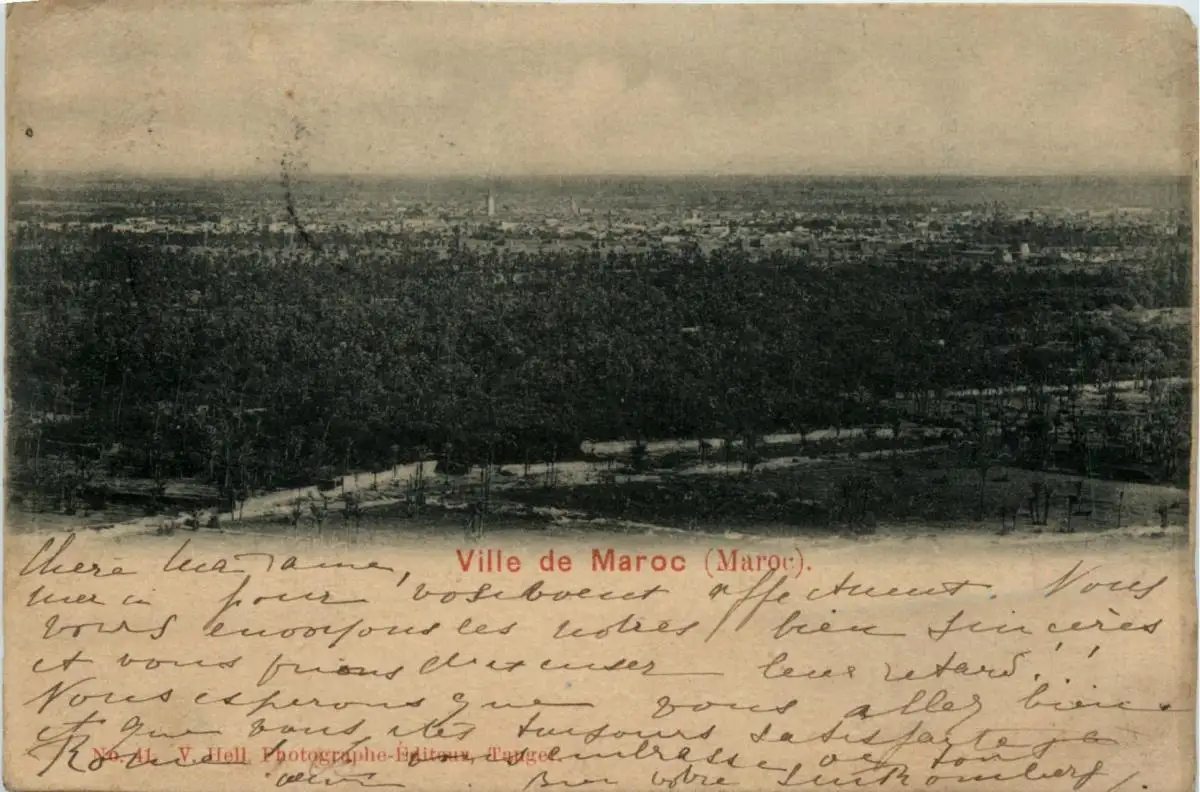 Ville de Maroc (Maroc).
Chère Madame,
merci pour vos voeux affectueux. Nous
vous envoyons les notres bien sincères
et vous prions d'excuser leur retard.
Nous esperons que vous allez bien
et que vous êtes toujours satisfaite
vous embrasse de tout
coeur. Bien votre
No. 41. V. Hell, Photographe-Éditeur, Tanger.